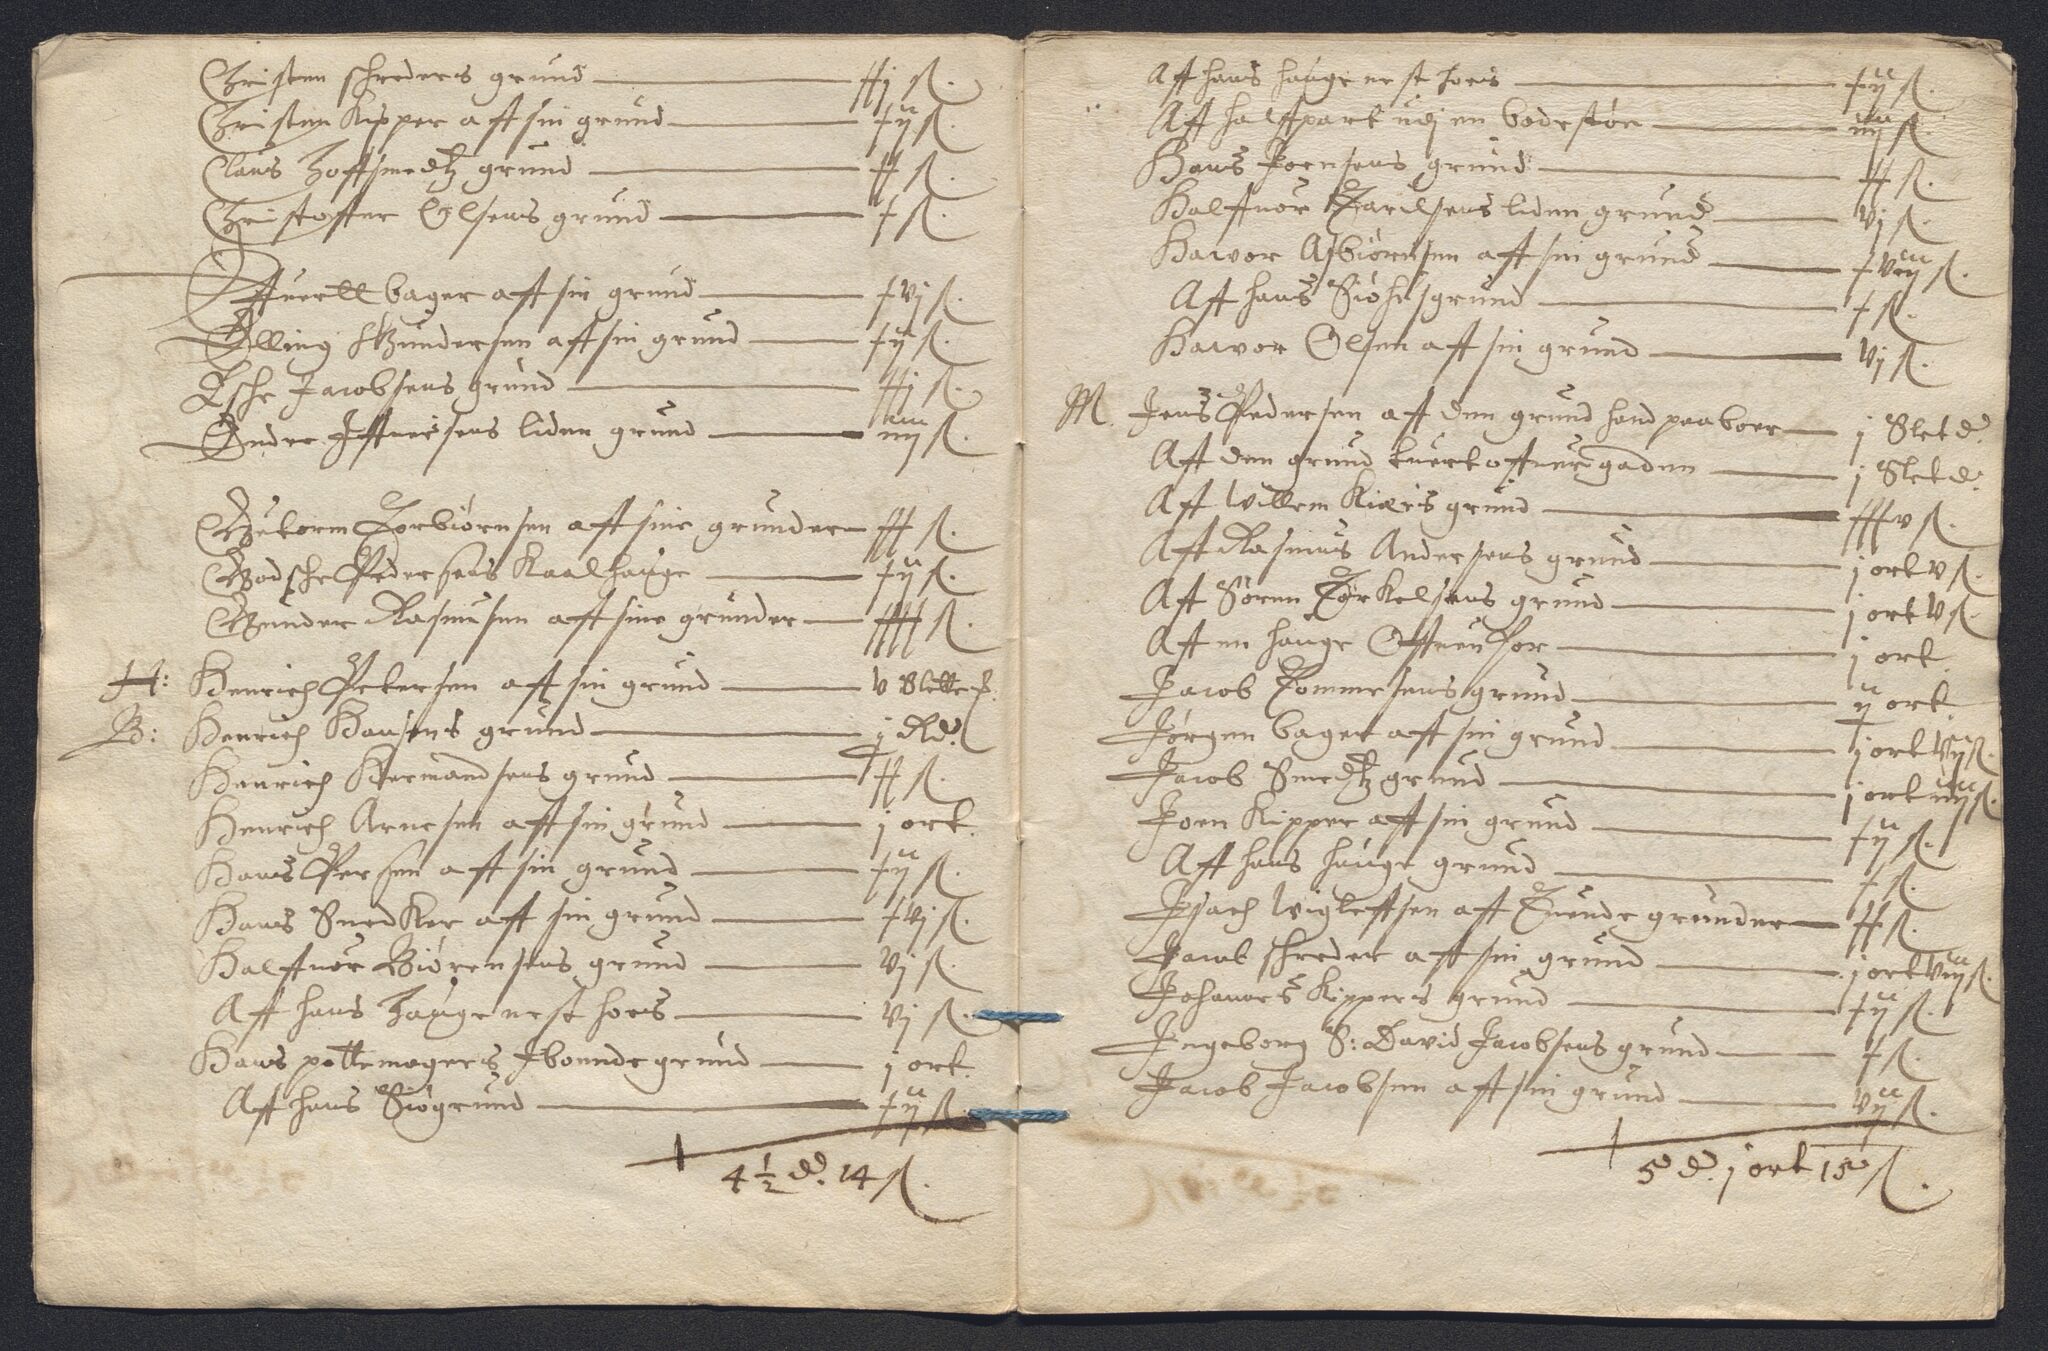 Christen schreders grund — xxj ß.
Christen Kipper aff sin grund — xij ß.
Claus Hoffsmedtz grund — xx ß.
Christoffer Olsens grund — x ß.
Effuertt bager aff sin grund — xvj ß.
Elling Gundersen aff sin grund — xij ß.
Esche Jacobsens grund — xxj ß.
Ender Iffuersens liden grund — iiij ß.
Gutorm Torbiørnsen aff sine grunder — xxx ß.
Godsche Pedersens Kaalhauge — xij ß.
Gunder Rasmusen aff sine grunder — xxxx ß.
H: Henrich Petersen aff sin grund — v Slette
B: Henrich Hansens grund — j Rd.
Henrich Hermandsens grund — xx ß.
Henrich Arnesen aff sin grund — j ort.
Hans Persen aff sin grund — xij ß.
Hans Snedker aff sin grund — xvj ß.
Halffuor Biørensens grund — vj ß.
Aff hans hauge nest hoes — vj ß.
Hans pottemagers Iboende grund — j ort.
Aff hans Siøgrund — xij ß.
4 ½ d. 14 ß.
Aff hans hauge nest hoes — xij ß.
Aff halfpart udj en bodestøe — iiij ß.
Hans Joensens grund — xx ß.
Halffuor Tarilsens liden grund — vj ß.
Haluor Asbiørnsen aff sin grund — xviij ß.
Aff hans Siøhusgrund — x ß.
Haluor Olsen aff sin grund — vj ß.
M. Jens Pedersen aff den grund hand paaboer — j Slet d.
Aff den grund tuert offuer gaden — j Slet d.
Aff Willem Kiærs grund — xxxv ß.
Aff Rasmus Andersens grund — j ort v ß.
Aff Søren Torkelsens grund — j ort v ß.
Aff en hauge Offuenfor — j ort.
Jacob Tommesens grund — ij ort.
Jørgen bager aff sin grund — j ort vij ß.
Jacob Smedtz grund — j ort iiij ß.
Joen Kipper aff sin grund — xij ß.
Aff hans hauge grund — x ß.
Isach Wigleffsen aff Tuende grunder — xx ß.
Jacob schreder aff sin grund — j ort viij ß.
Johannes Kippers grund — xij ß.
Ingeborg S: David Jacobsens grund — x ß.
Jacob Jacobsen aff sin grund — vij ß.
5 d. j ort 15 ß.